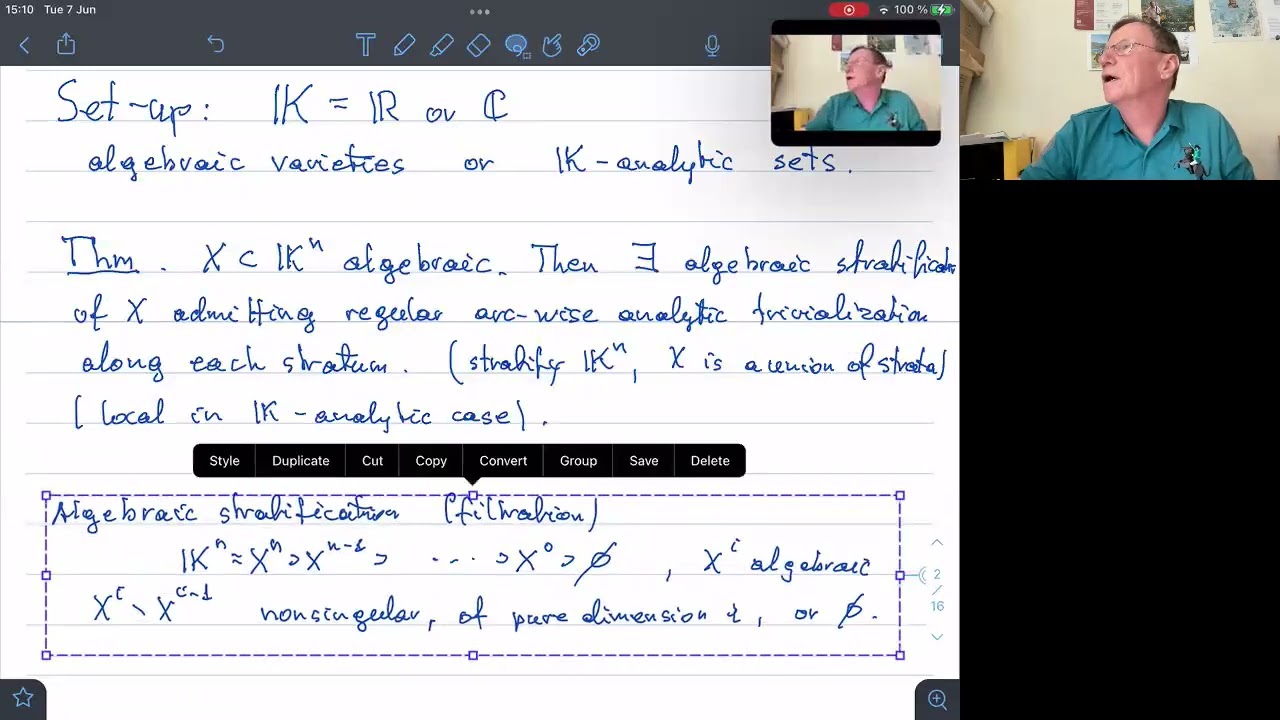 15:10 Tue 7 Jun
100 %
Set-up: 𝕂 = ℝ or ℂ
algebraic varieties or 𝕂-analytic sets.
Thm. X ⊂ 𝕂ⁿ algebraic. Then ∃ algebraic stratification
of X admitting regular arc-wise analytic trivialization
along each stratum. (stratify 𝕂ⁿ, X is a union of strata)
(local in 𝕂-analytic case).
Style Duplicate Cut Copy Convert Group Save Delete
Algebraic stratification (filtration)
𝕂ⁿ = Xⁿ ⊃ Xⁿ⁻¹ ⊃ ... ⊃ X⁰ ⊃ ∅, Xⁱ algebraic
Xⁱ \ Xⁱ⁻¹ nonsingular, of pure dimension i, or ∅.
2
/
16